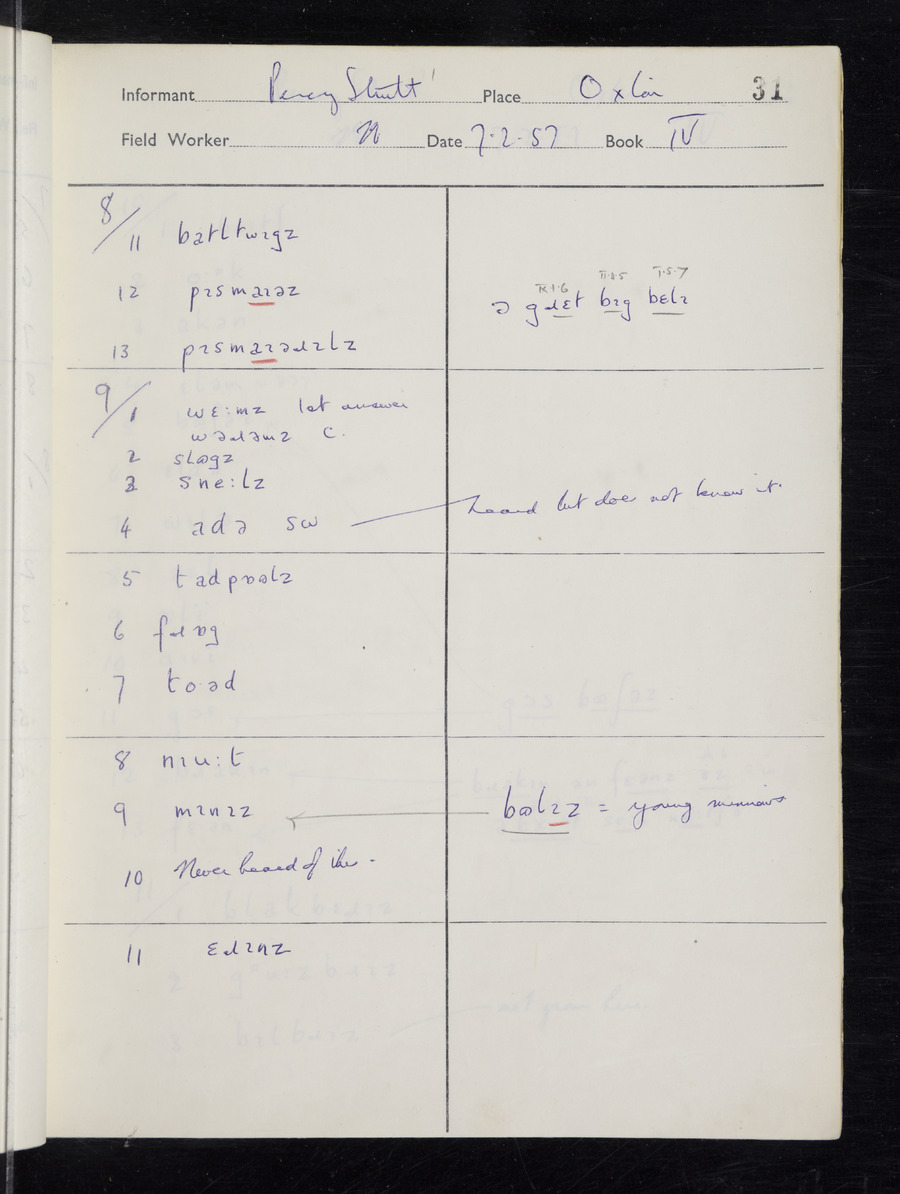 Informant Percy Place 31
Field Worker Date 7·2·57 Book IV
8/11 batltwɪgz
12 pɪsmaɪəz
R·I·6 II·8·5 I·5·7
ə gɹɛt bɪg bɛlɪ
13 pɪsmaɪəɹɪlz
9/1 wɛ:mz 1st answer
wəɹəmz C.
2 slɒgz
3 sne:lz
4 adə sɷ
heard but does not know it.
5 tadpɒəlz
6 fɹɒg
7 to·əd
8 nɪu:t
9 mɪnɪz
bɷlɪz = young minnows
10 Never heard of this.
11 ɛɹɪnz